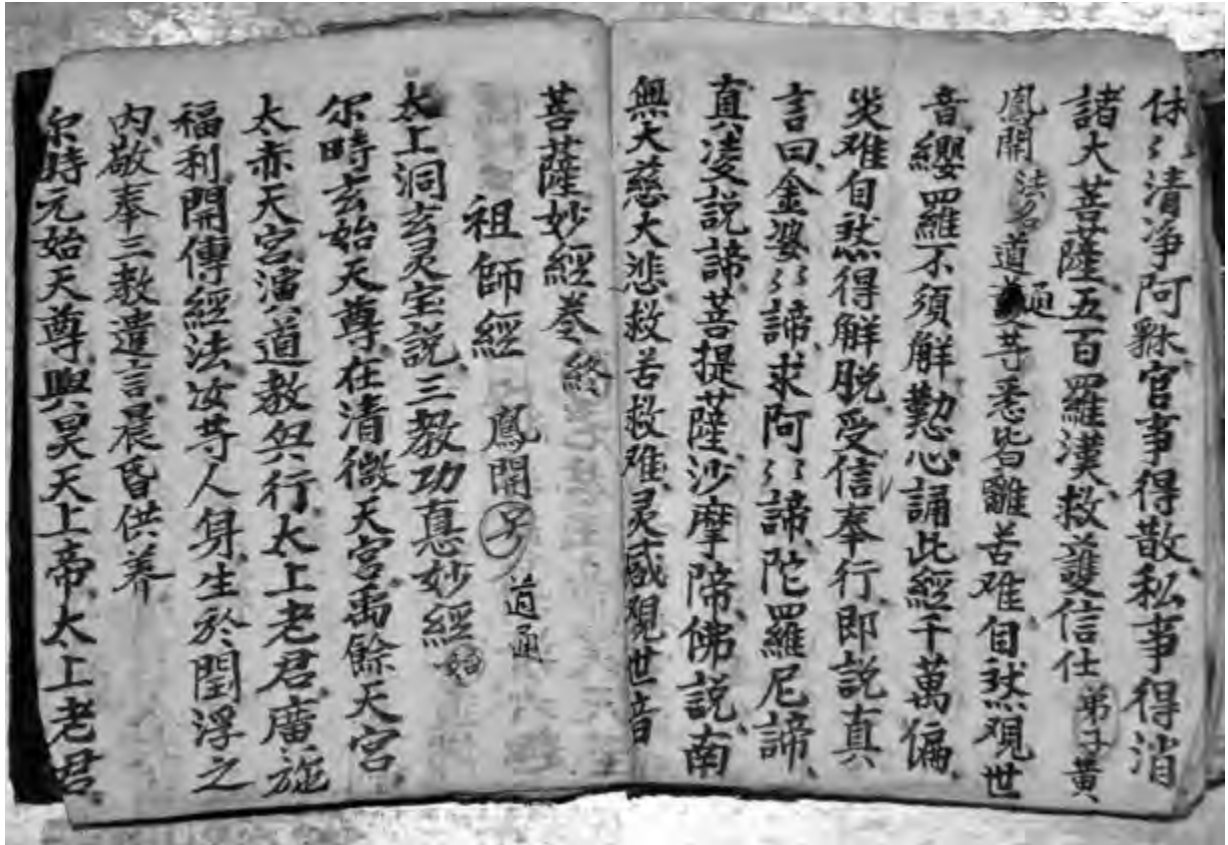 休〻清净阿官事得散、私事得消
諸大菩薩、五百羅漢、救護信仕弟子黃
鳳開法名道通䓁悉皆離苦难自然覌世
音纓羅不須解懃心誦此經千萬偏、
災难自然得解脱受信奉行、即説真
言曰、金婆〻諦、求阿〻諦、陀羅尼諦、
真淩説諦、菩提薩沙摩啼、佛説、南
無大慈大悲救苦救难灵感覌世音
菩薩妙經卷終
祖師經 鳳開子道通
太上洞玄灵宝説、三教功惪妙經始
尔時玄始天尊、在清微天宫、禹餘天宫、
太赤天宫、演道教與行、太上老君、廣施
福利、開傳經法、汝䓁人身、生於閻浮之
內、敬奉三教遣言、晨昏供养
尔時元始天尊、與昊天上帝、太上老君、